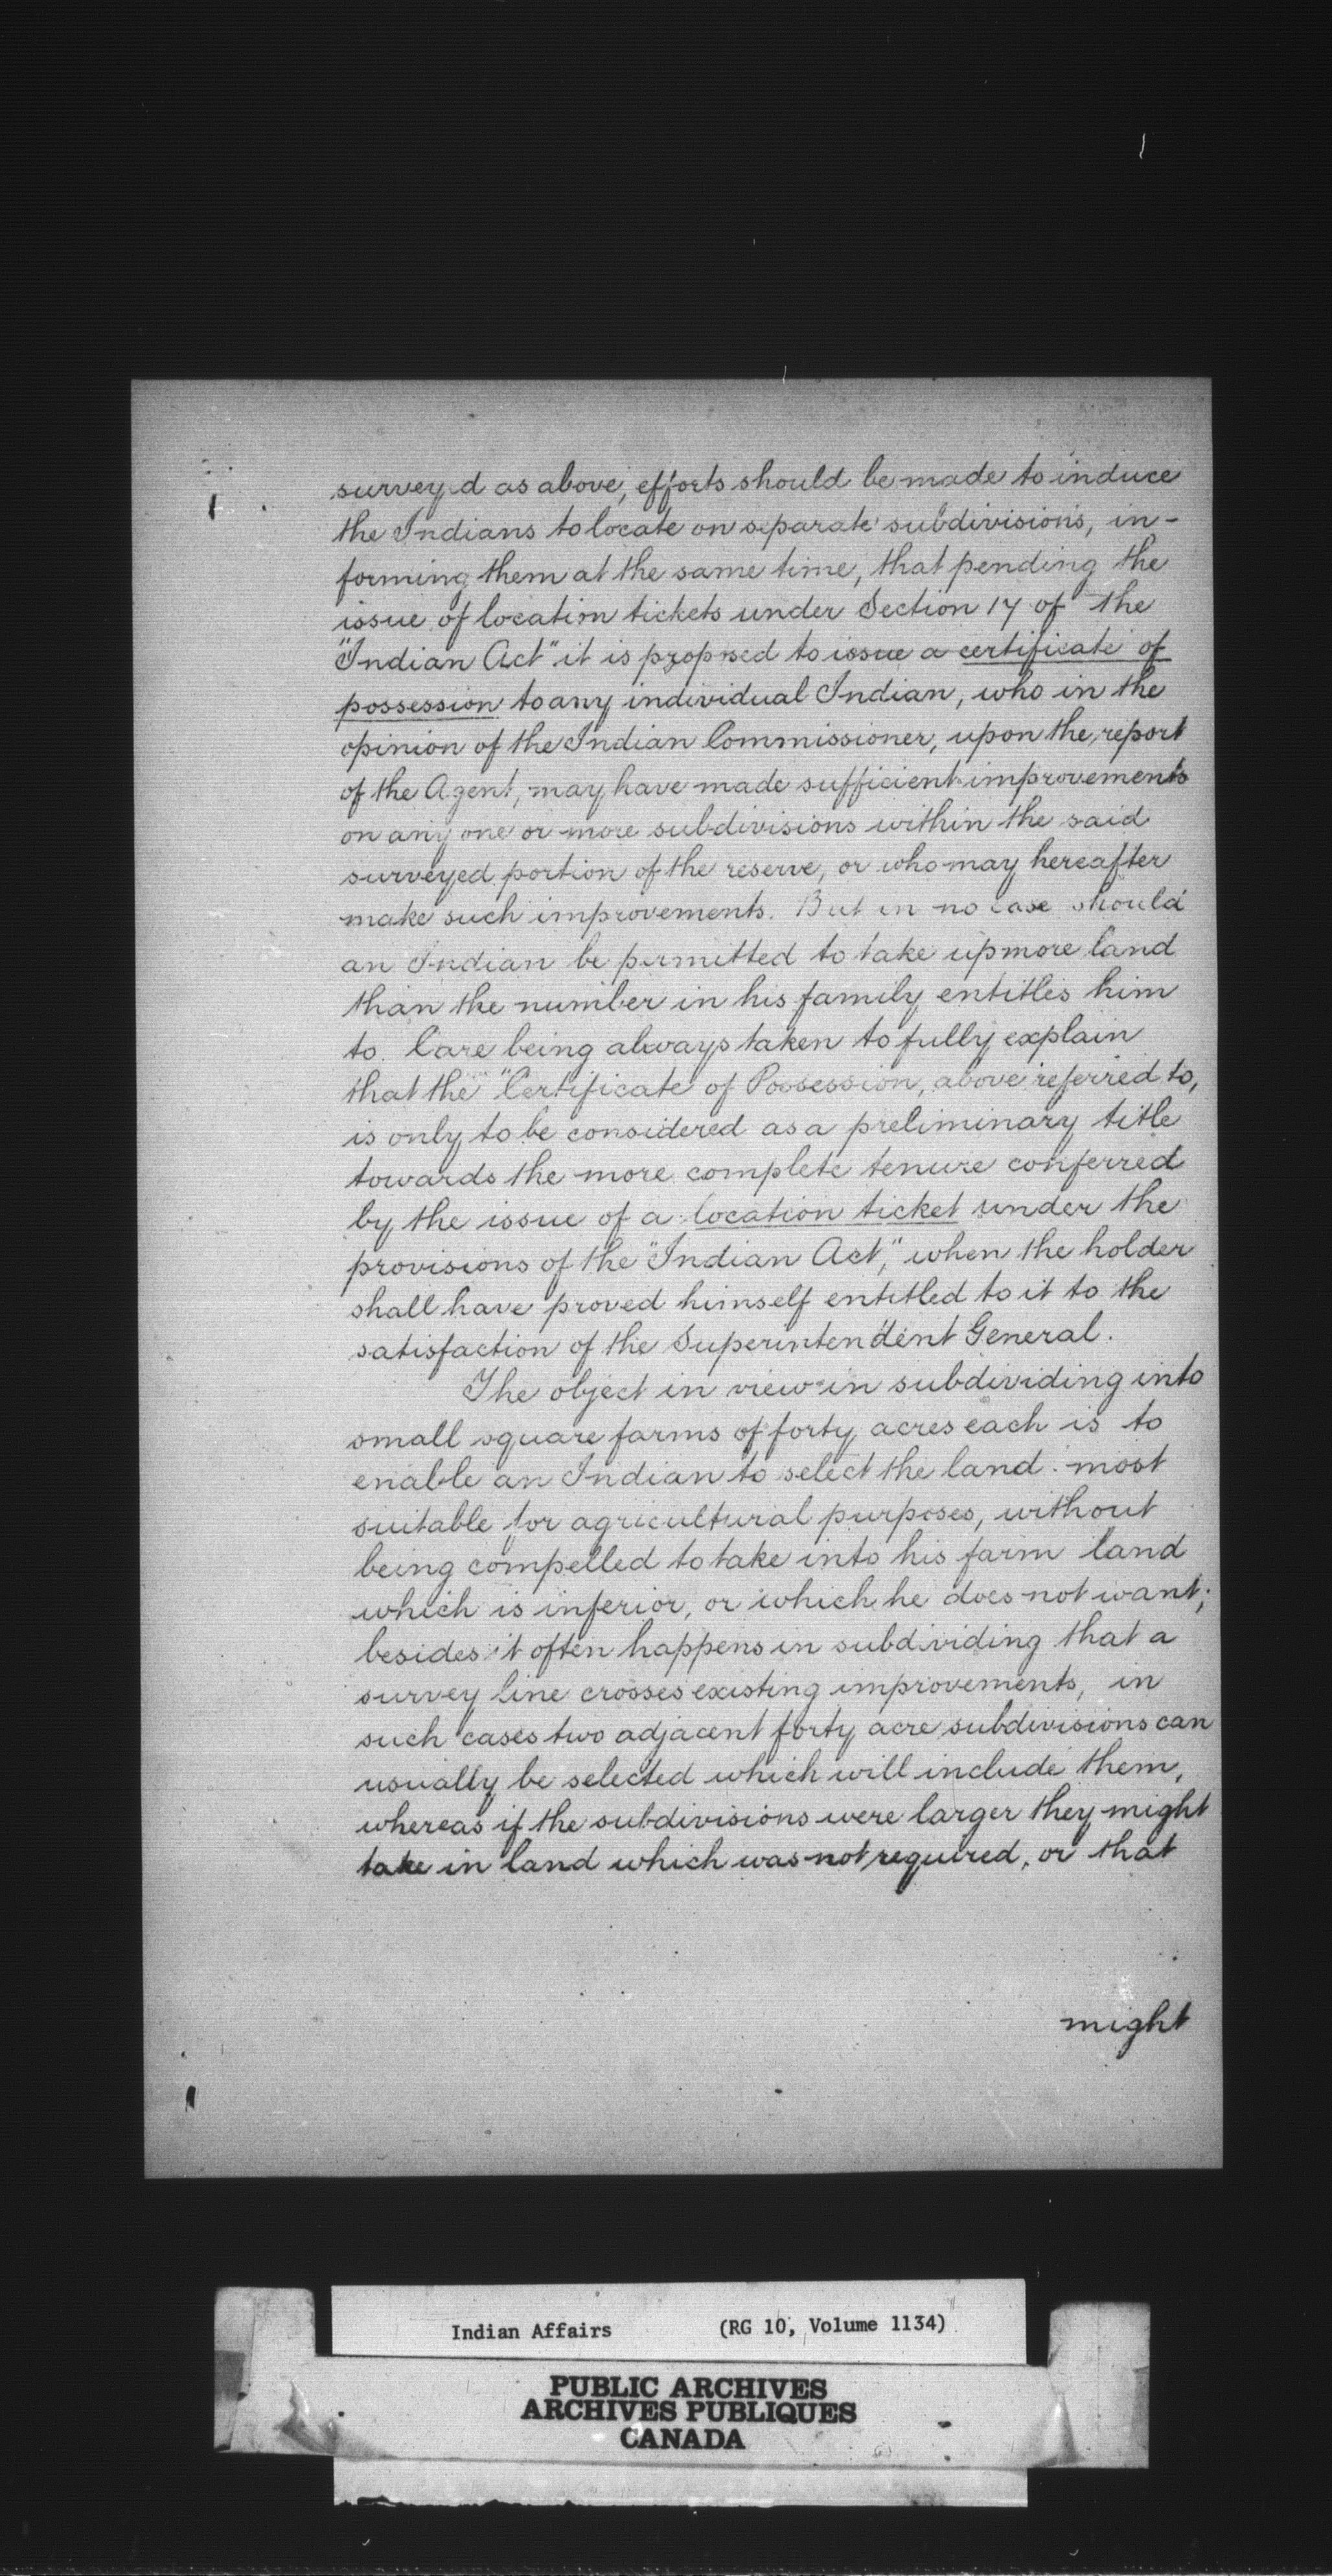 surveyed as above, efforts should be made to induce
the Indians to locate on separate subdivisions, in-
forming them at the same time, that pending the
issue of location tickets under Section 17 of the
"Indian Act" it is proposed to issue a certificate of
possession to any individual Indian, who in the
opinion of the Indian Commissioner, upon the report
of the Agent, may have made sufficient improvements
on any one or more subdivisions within the said
surveyed portion of the reserve, or who may hereafter
make such improvements. But in no case should
an Indian be permitted to take up more land
than the number in his family entitles him
to. Care being always taken to fully explain
that the "Certificate of Possession, above referred to,
is only to be considered as a preliminary title
towards the more complete tenure conferred
by the issue of a location ticket under the
provisions of the "Indian Act," when the holder
shall have proved himself entitled to it to the
satisfaction of the Superintendent General.
The object in view in subdividing into
small square farms of forty acres each is to
enable an Indian to select the land most
suitable for agricultural purposes, without
being compelled to take into his farm land
which is inferior, or which he does not want;
besides it often happens in subdividing that a
survey line crosses existing improvements, in
such cases two adjacent forty acre subdivisions can
usually be selected which will include them,
whereas if the subdivisions were larger they might
take in land which was not required, or that
might
Indian Affairs (RG 10, Volume 1134)
PUBLIC ARCHIVES
ARCHIVES PUBLIQUES
CANADA